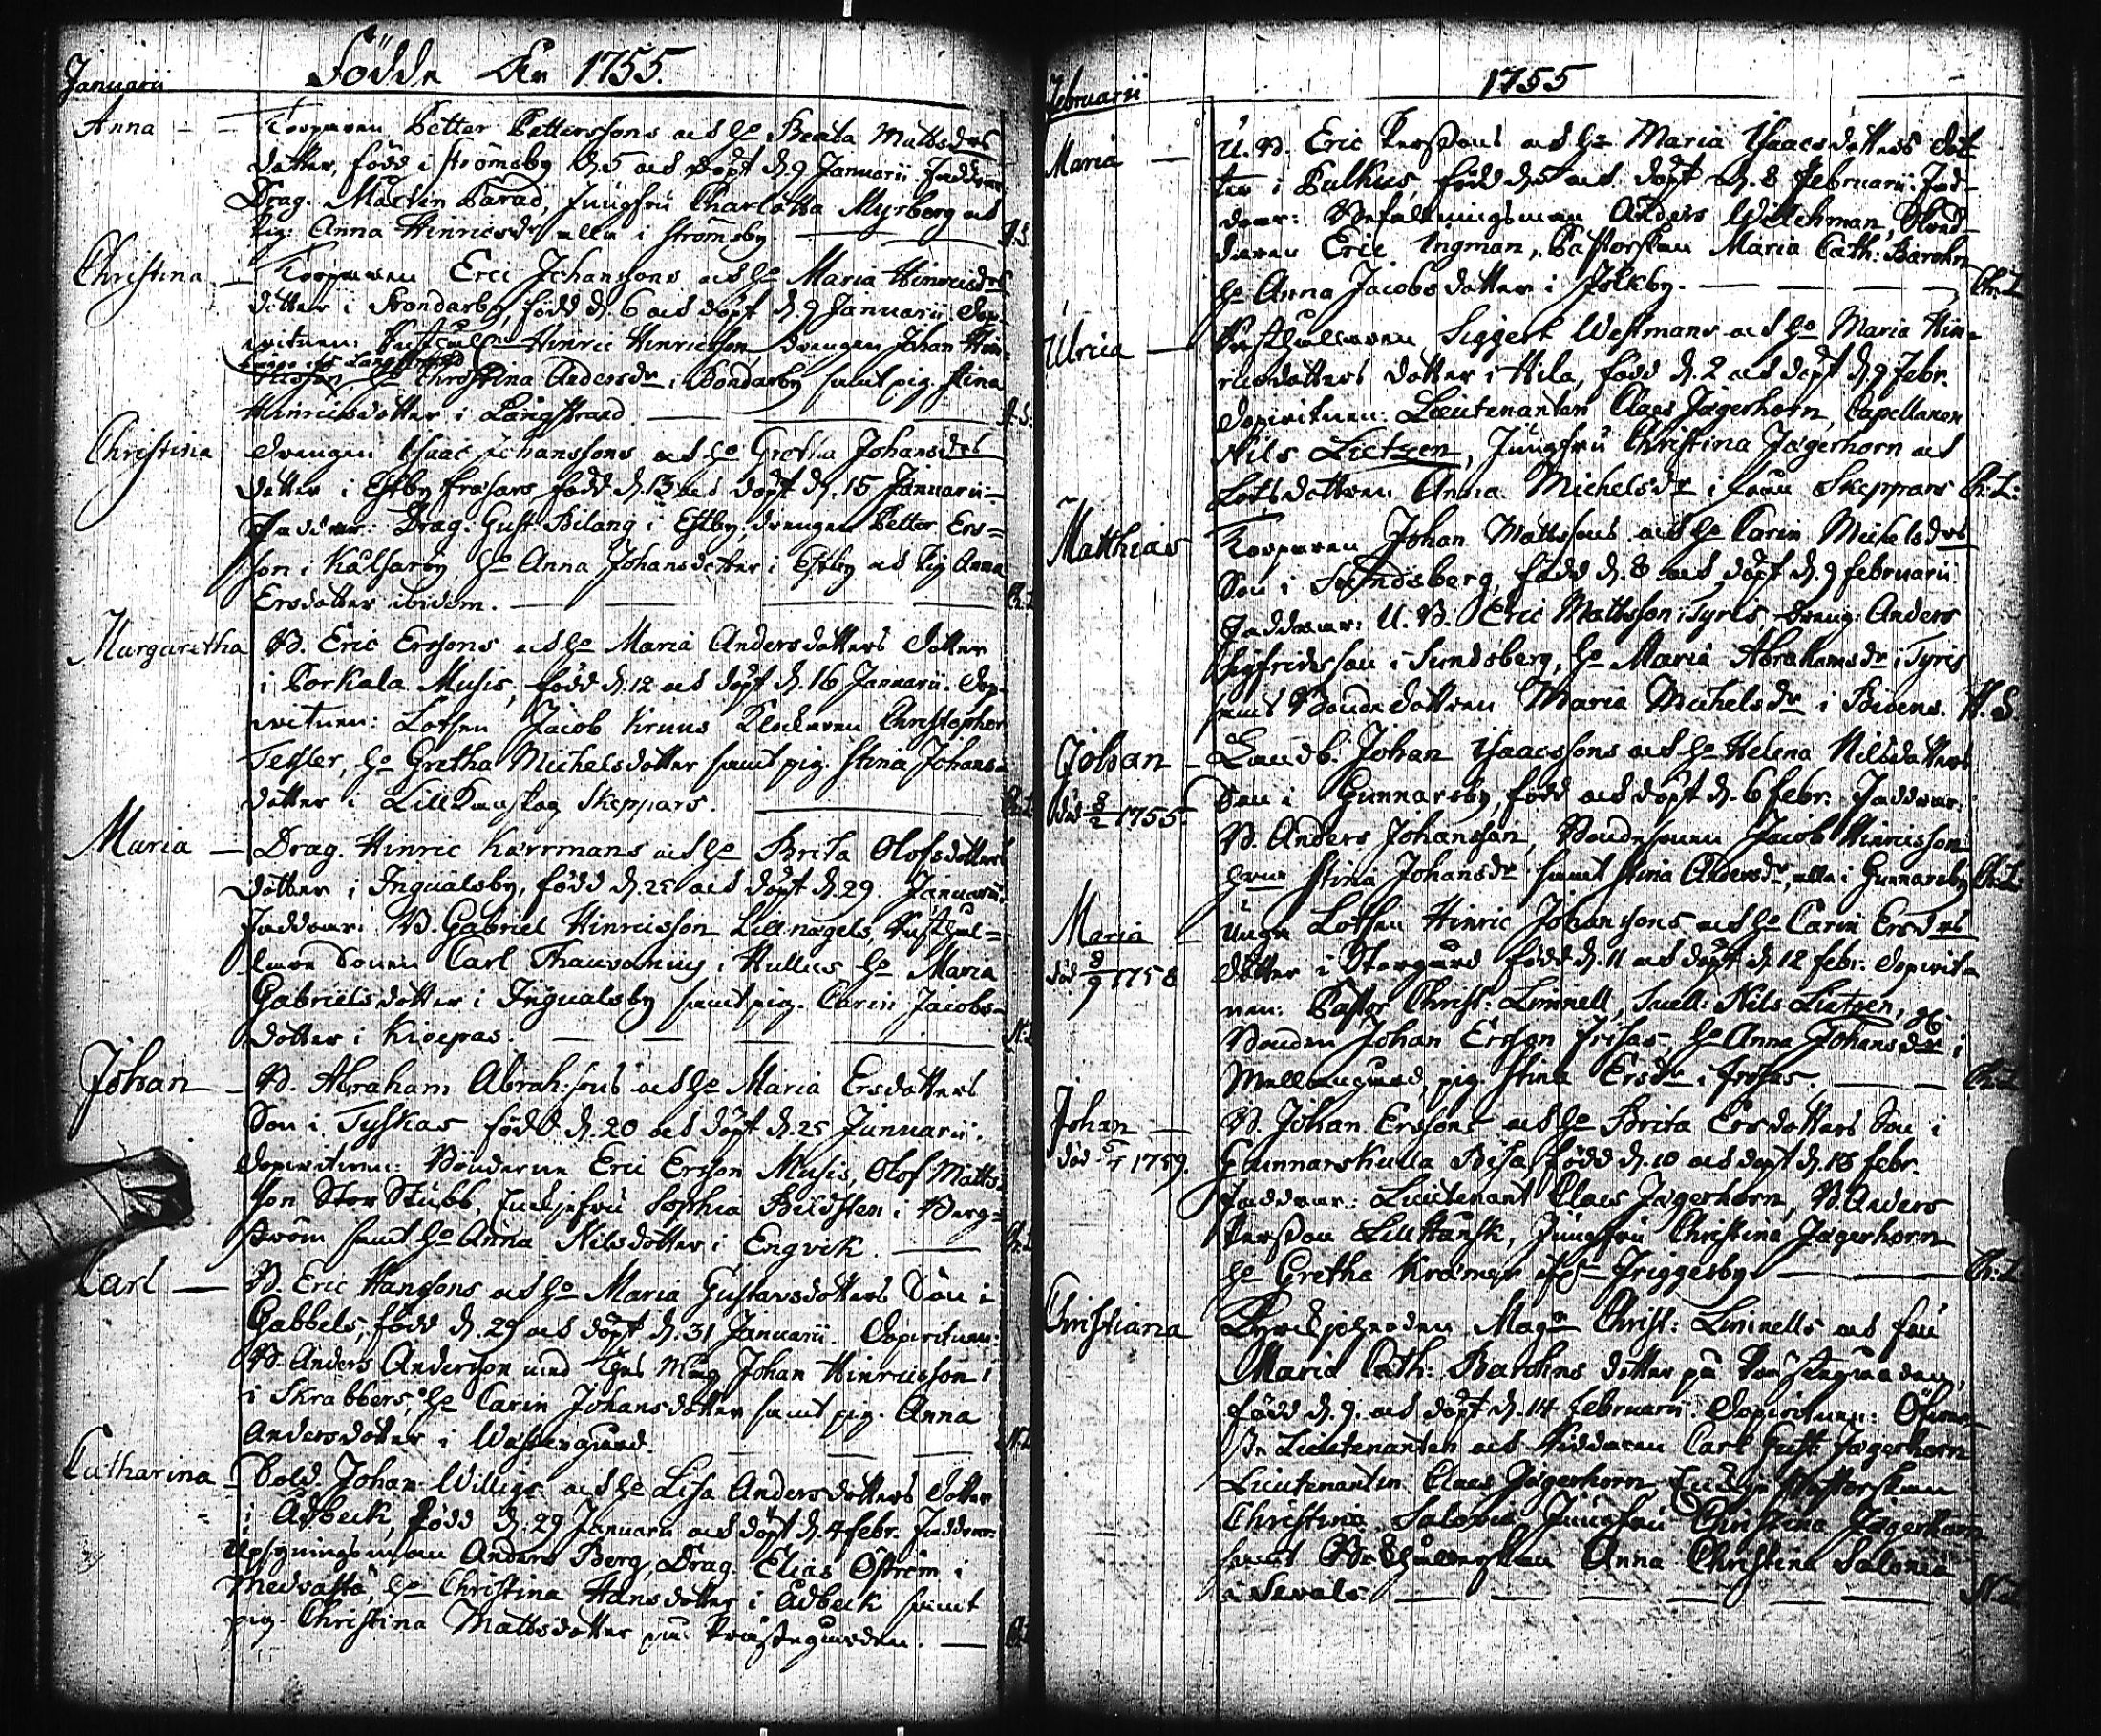 Januarii
Födde År 1755.
Anna - - Torparen Petter Petterssons och H:o Beata Mattsdrs
dotter, född i Strömsby d. 5 och döpt d. 9 Januarii. Faddrar
Drag. Martin Parad, Jungfru Charlotta Myrberg och
Pig: Anna Hinricsdr alla i Strömsby. H.S.
Christina - Torparen Eric Johanssons och H:o Maria Hinricsdrs
dotter i Bondarby, född d. 6 och döpt d. 9 Januarii. Dop-
witnen: Hinric Hinricsson drengen Johan Hin-
ricsson H:o Christina Andersdr i Bondarby samt pig. Stina
Hinricsdotter i Långstrand H.S.
Christina drengen Isaac Johanssons och H:o Gretha Johansdrs
dotter i Estby Frosars född d. 13 och döpt d. 15 Januarii
Faddrar: Drag. Gust. Bilang i Estby, drengen Petter Ers=
son i Kålsarby, H:o Anna Johansdotter i Estby och Pig Anna
Ersdotter ibidem. Ch. L
Margaretha B. Eric Erssons och H:o Maria Andersdotters dotter
i Porkala Musis, född d. 12 och döpt d. 16 Januarii. Dop-
witnen: Lotsen Jacob Kruus Klockaren Christopher
Tesler, H:o Gretha Michelsdotter samt pig. Stina Johans-
dotter i Lill Kanskog Skeppars. Ch. L
Maria - Drag. Hinric Karrmans och H:o Brita Olofsdotters
dotter i Ingualsby, född d. 25 och döpt d. 29. Januarii.
Faddrar: B. Gabriel Hinricsson Lill nägels, Rusthål=
lare Sonen Carl Thauvonius i Hullus H:o Maria
Gabrielsdotter i Ingualsby samt pig. Carin Jacobs-
dotter i Kioepas. N. L
Johan - B. Abraham Abrah:sons och H:o Maria Ersdotters
Son i Tyskas född d. 20 och döpt d. 25 Januarii.
Dopwitnen: Bönderne Eric Ersson Musis, Olof Matts-
son Stor Stubb, Sophia Bildsten i Berg=
ström samt H:o Anna Nilsdotter i Engvik. Ch. L
Carl - B. Eric Hanssons och H:o Maria Gustavsdotters Son i
Gabbels, född d. 29 och döpt d. 31 Januarii. Dopwitnen:
B. Anders Andersson med Johan Hinricsson
i Skrabbers, H:o Carin Johansdotter samt pig. Anna
Andersdotter i Westergård. N. L
Catharina - Sold. Johan Willigs och H:o Lisa Andersdotters dotter
i Edbeck, född d. 29 Januarii och döpt d. 4 febr. Faddrar:
Upsyningsman Anders Berg, Drag. Elias Öström i
Medvasta, H:o Christina Hansdotter i Edbeck samt
pig. Christina Mattsdotter på Prästegården. Ch. L
Februarii
1755
Maria - U. B. Eric Perssons och H:o Maria Isaacsdotters dot
ter i Pulkus, född d. och döpt d. 8 Februarii. Fad-
drar: Befallningsman Anders Welchman,
Eric Ingman, Pastorskan Maria Cath: Barohn
H:o Anna Jacobsdotter i Jolkby. Ch. L
Ulrica - Rusthållaren Siggert Westmans och H:o Maria Hin=
ricsdotters dotter i Hila, född d. 2 och döpt d. 9 Febr.
Dopwitnen: Lieutenanten Claes Jägerhorn, Capellanen
Nils Lietzen, Jungfru Christina Jägerhorn och
Lotsdottren Anna Michelsdr i Skeppars Ch. L:
Matthias Torparen Johan Mattssons och H:o Carin Michelsdrs
Son i Sundsberg, född d. 8 och döpt d. 9 februarii
Faddrar: U. B. Eric Mattsson i Tyris, dreng: Anders
Sigfridsson i Sundsberg, H:o Maria Abrahamsdr i Tyris
samt Bondedottren Maria Michelsdr i Bidens. H. S.
Johan - Landb. Johan Isaacssons och H:o Helena Nilsdotters
död 8/2 1755. Son i Gunnarsby, född och döpt d. 6 febr. Faddrar:
B. Anders Johansson, Bondesonen Jacob Hinricsson
Stina Johansdr samt Stina Andersdr, alla i Gunnarsby Ch. L
Maria - Unga Lotsen Hinric Johanssons och H:o Carin Ersdrs
död 8/9 1758 dotter i Storgård född d. 11 och döpt d. 12 febr. Dopwit-
nen: Pastor Christ: Liminell, Nils Lietzen,
Bonden Johan Ersson Frisas, H:o Anna Johansdr i
Mellangård, pig. Stina Ersdr i Frosas. Ch. L
Johan - B. Johan Erssons och H:o Brita Ersdotters Son i
död 5/4 1759. Gunnarskulla Bisa, född d. 10 och döpt d. 18 febr.
Faddrar: Lieutenant Claes Jägerhorn, B. Anders
Persson Lill Kansk, Jungfru Christina Jägerhorn
H:o Gretha Kræmer Friggesby Ch. L
Christiana Kyrckjoherden Mag:r Christ: Liminells och fru
Maria Cath: Barohns dotter på Prästegården,
född d. 9. och döpt d. 14 Februarii. Dopwitnen: Öfwer-
ste Lieutenanten och Riddaren Carl Gust: Jägerhorn
Lieutenanten Claes Jägerhorn, Pastorskan
Christina Salonia Jungfru Christina Jägerhorn
samt Anna Christina Salonia
i Sewals. N. L